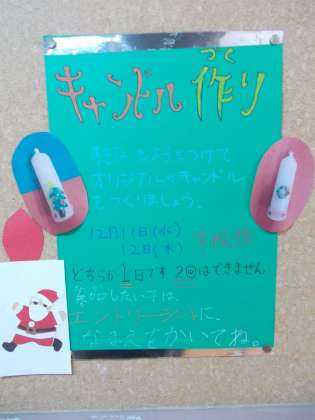 つく
キャンドル作り
もようをつけて
オリジナルのキャンドル
をつくりましょう。
12月11日(水)
12日(木)
どちらか1日です。2回はできません
さんか
参加したい子は
エントリーシートに、
なまえをかいてね。